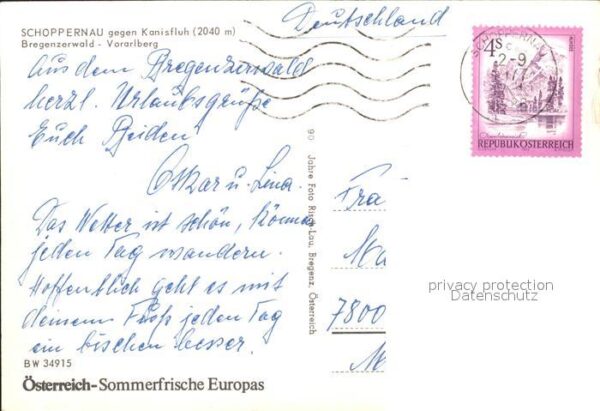 SCHOPPERNAU gegen Kanisfluh (2040 m)
Bregenzerwald - Vorarlberg
Deutschland
Aus dem Bregenzerwald
herzl. Urlaubsgrüße
Euch Beiden
Oskar u. Lina.
Das Wetter ist schön, können
jeden Tag wandern.
Hoffentlich geht es mit
deinem Fuß jeden Tag
ein bischen besser.
BW 34915
Österreich-Sommerfrische Europas
90 Jahre Foto Risch-Lau, Bregenz, Österreich
SCHOPPERNAU
2-9
4S
REPUBLIK ÖSTERREICH
Fra
Ma
7800
privacy protection
Datenschutz